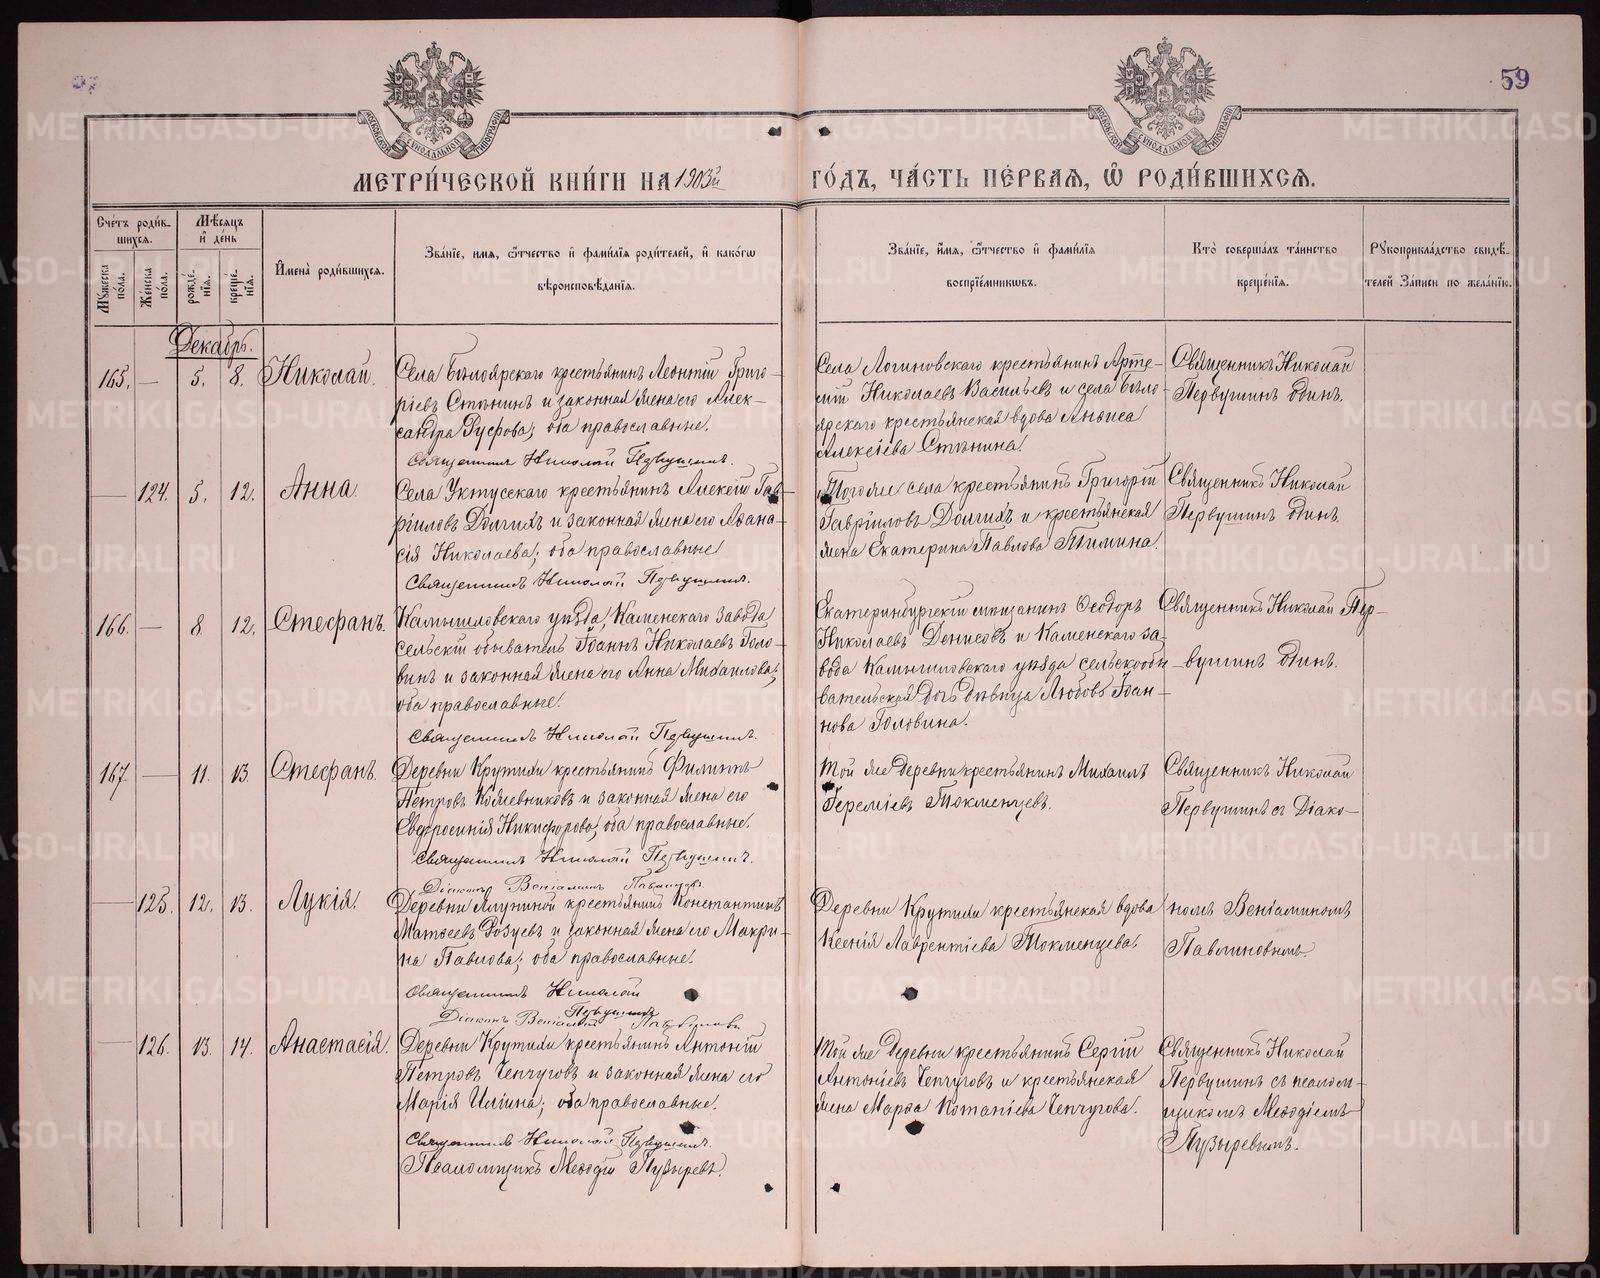 59
МОСКОВСКОЙ СѴНОДАЛЬНОЙ ТИПОГРАФІИ
МОСКОВСКОЙ СѴНОДАЛЬНОЙ ТИПОГРАФІИ
МЕТРИ́ЧЕСКОЙ КНИ́ГИ НА 1903й ГО́ДЪ, ЧА́СТЬ ПЕ́РВАЯ, Ѿ РОДИ́ВШИХСЯ.
Сче́тъ роди́в-
шихся.
Мужеска по́ла.
Же́нска по́ла.
Мѣ́сяцъ
и҆ де́нь
рожде́-
нія.
креще́-
нія.
И҆мена̀ роди́вшихся.
Зва́ніе, имя, ѻ҆́тчество и҆ фами́лія роди́телей, и҆ како́гѡ
вѣроисповѣ́данія.
Зва́ніе, и҆́мя, ѻ҆́тчество и҆ фами́лія
воспріе́мникѡвъ.
Кто̀ соверша́лъ та́инство
креще́нія.
Рукоприкла́дство свидѣ́-
телей за́писи по жела́нію.
Декабрь.
165. — 5. 8. Николай.
Села Бѣлоярскаго крестьянинъ Леонтій Григо-
ріевъ Стѣнинъ и законная жена его Алек-
сандра Руфова; оба православные.
Священникъ Николай Первушинъ.
Села Логиновскаго крестьянинъ Арте-
мій Николаевъ Васильевъ и села Бѣло-
ярскаго крестьянская вдова Анѳиса
Алексіева Стѣнина.
Священникъ Николай
Первушинъ одинъ.
— 124. 5. 12. Анна.
Села Уктусскаго крестьянинъ Алексій Гав-
ріиловъ Долгихъ и законная жена его Аѳана-
сія Николаева; оба православные
Священникъ Николай Первушинъ.
Тогоже села крестьянинъ Григорій
Гавріиловъ Долгихъ и крестьянская
жена Екатерина Павлова Тимина.
Священникъ Николай
Первушинъ одинъ.
166. — 8 12. Стефанъ.
Камышловскаго уѣзда, Каменскаго завода
сельскій обыватель Іоаннъ Николаевъ Голо-
винъ и законная жена его Анна Михаилова;
оба православные.
Священникъ Николай Первушинъ.
Екатеринбургскій мѣщанинъ Ѳеодоръ
Николаевъ Денисовъ и Каменскаго за-
вода Камышловскаго уѣзда сельскообы-
вательская дочь дѣвица Любовь Іоан-
нова Головина.
Священникъ Николай Пер-
вушинъ одинъ.
167. — 11. 13. Стефанъ.
Деревни Крутихи крестьянинъ Филиппъ
Петровъ Кожевниковъ и законная жена его
Евфросинія Никифорова; оба православные.
Священникъ Николай Первушинъ.
Діаконъ Веніаминъ Павлиновъ
Той же деревни крестьянинъ Михаилъ
Іереміевъ Токменцевъ.
Священникъ Николай
Первушинъ съ Діако-
— 125. 12. 13. Лукія.
Деревни крестьянинъ Константинъ
Матѳеевъ и законная жена его Макри-
на Павлова; оба православные.
Священникъ Николай
Первушинъ
Діаконъ Веніаминъ Павлиновъ
Деревни Крутихи крестьянская вдова
Ксенія Лаврентіева Токменцева.
номъ Веніаминомъ
Павлиновымъ.
— 126. 13. 14. Анастасія.
Деревни Крутихи крестьянинъ Антоній
Петровъ Чепчуговъ и законная жена его
Марія Иліина; оба православные.
Священникъ Николай Первушинъ.
Псаломщикъ Меѳодій Пузыревъ.
Той же деревни крестьянинъ Сергій
Антоніевъ Чепчуговъ и крестьянская
жена Марѳа Потапіева Чепчугова.
Священникъ Николай
Первушинъ съ псалом-
щикомъ Меѳодіемъ
Пузыревымъ.
METRIKI.GASO-URAL.RU